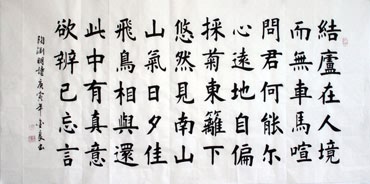 結廬在人境
而無車馬喧
問君何能尔
心遠地自偏
採菊東籬下
悠然見南山
山氣日夕佳
飛鳥相與還
此中有真意
欲辨已忘言
陶淵明詩庚寅年